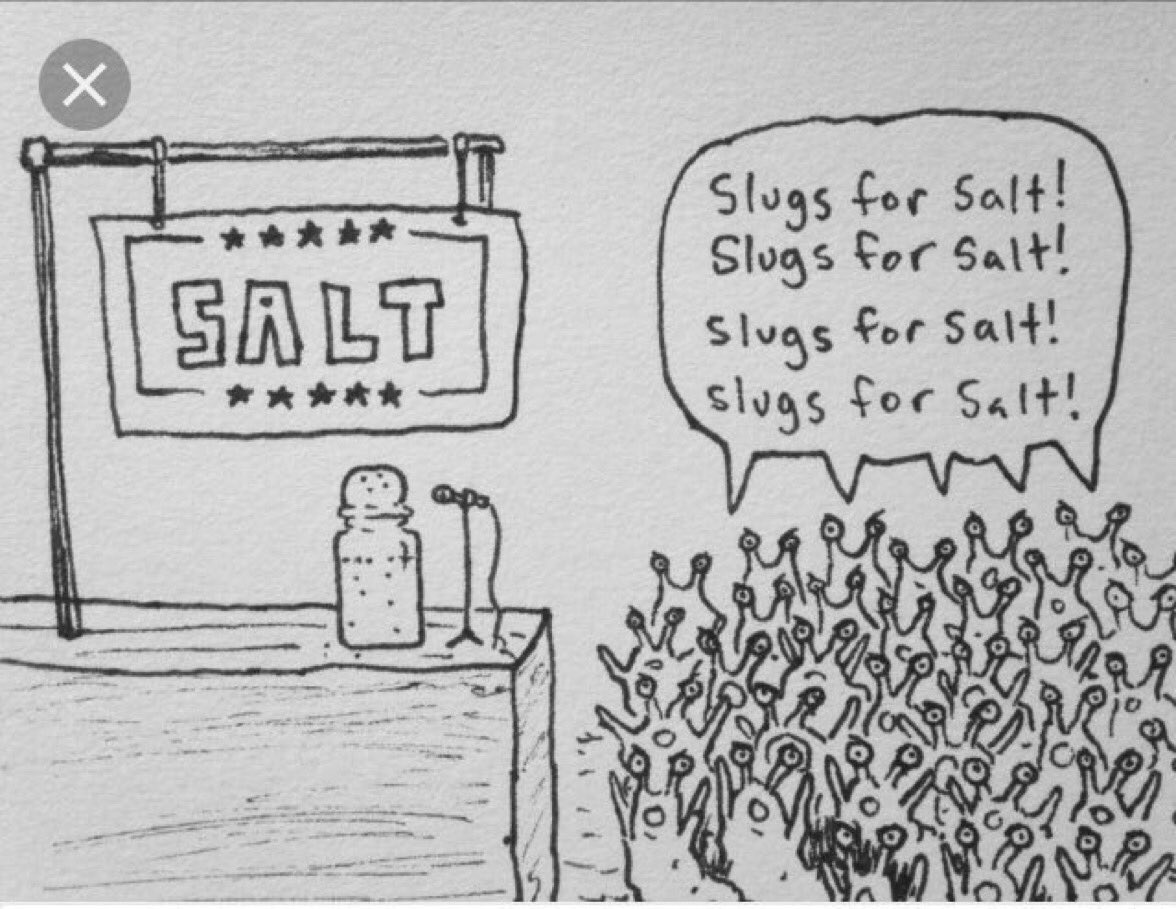 SALT
Slugs for Salt!
Slugs for Salt!
slugs for Salt!
slugs for Salt!